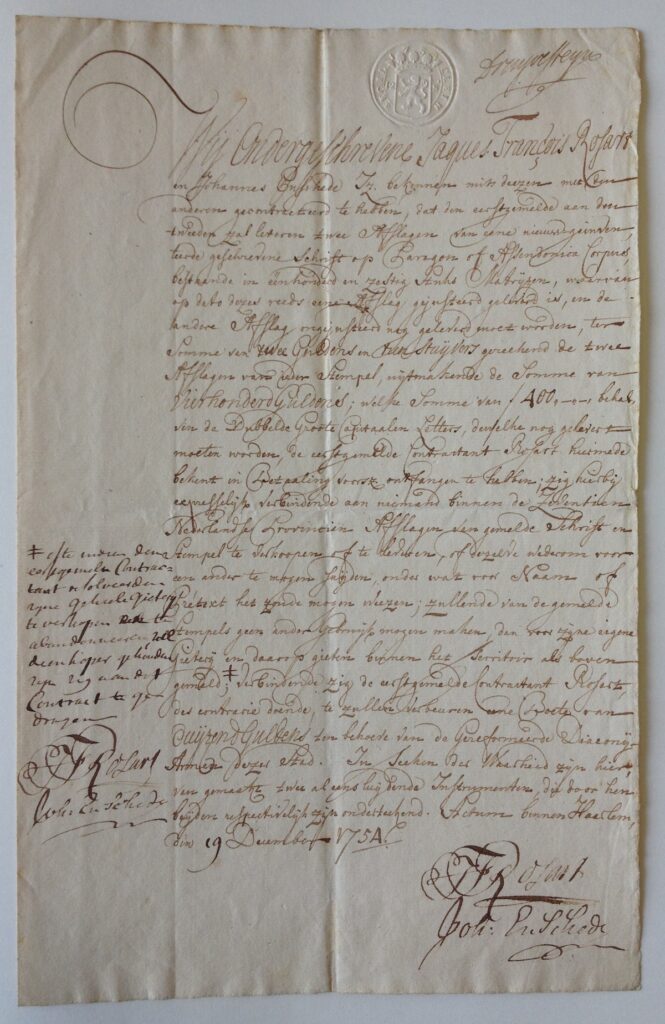 Wij Ondergeschrevene Jaques François Rosart
en Johannes Enschede Iz. bekennen mits deezen met den
anderen gecontracteerd te hebben, dat den eerstgemelde aan den
tweeden zal leveren twee Afslagen van eene nieuwgeinven,
teerde geschrevene Schrift op Paragon of Assendonica Corpus
bestaande in eenhonderd en zestig stuks Matrijzen, waarvan
op dato dezes reeds eene Afslag gejusteerd geleverd is, en de
andere Afslag ongejusteerd nog geleverd moet worden, ter
Somme van twee Guldens en tien Stuyvers gereekend de twee
Afslagen van ieder Stempel, uytmakende de Somme van
Vierhonderd Guldens; welke Somme van f 400,-0-, behal,
ven de Dubbelde Groote Capitaalen Letters, dewelke nog gelevert
moeten worden, de eerstgemelde Contractant Rosart hiermede
bekent in Betaaling voorsz. ontfangen te hebben; zig hierbij
expresselijk verbindende aan niemand binnen de Zeven
Nederlandse Provincien Afslagen van gemelde Schrift en
Stempel te verkoopen of te leveren, of dezelve wederom voor
een ander te mogen snyden, onder wat voor Naam of
Pretext het zoude mogen wezen; zullende van de gemelde
Stempels geen ander Gebruijk mogen maken, dan voor zyne eigene
Gieterij en daarop gieten binnen het Territoir als boven
gemeld; ‡ verbindende zig de eerstgemelde Contractant Rosart
des contrarie doende, te zullen verbeuren eene Boete van
Duijzend Guldens ten behoeve van de Gereformeerde Diaconije
Armen dezer Stad. In teeken der Waarheid zijn hier,
van gemaakt twee aleensluydende Instrumenten, die door hen
beyden respectivelijk zijn onderteekend. Actum binnen Haarlem,
den 19 December 1754.
‡ ofte indien den
eerstgemelde Contrac-
tant resolveerden
zyne geheele Gietery
te verkopen of te
abandonneeren, zal
den koper gehouden
zyn zig aan dit
Contract te ge
dragen
JF Rosart
Joh: Enschede
JF Rosart
Joh: Enschede